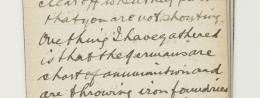 clear off when they
that you are not shouting.
One thing I have gathered
is that the germans are
short of ammunition and
are throwing iron foundries